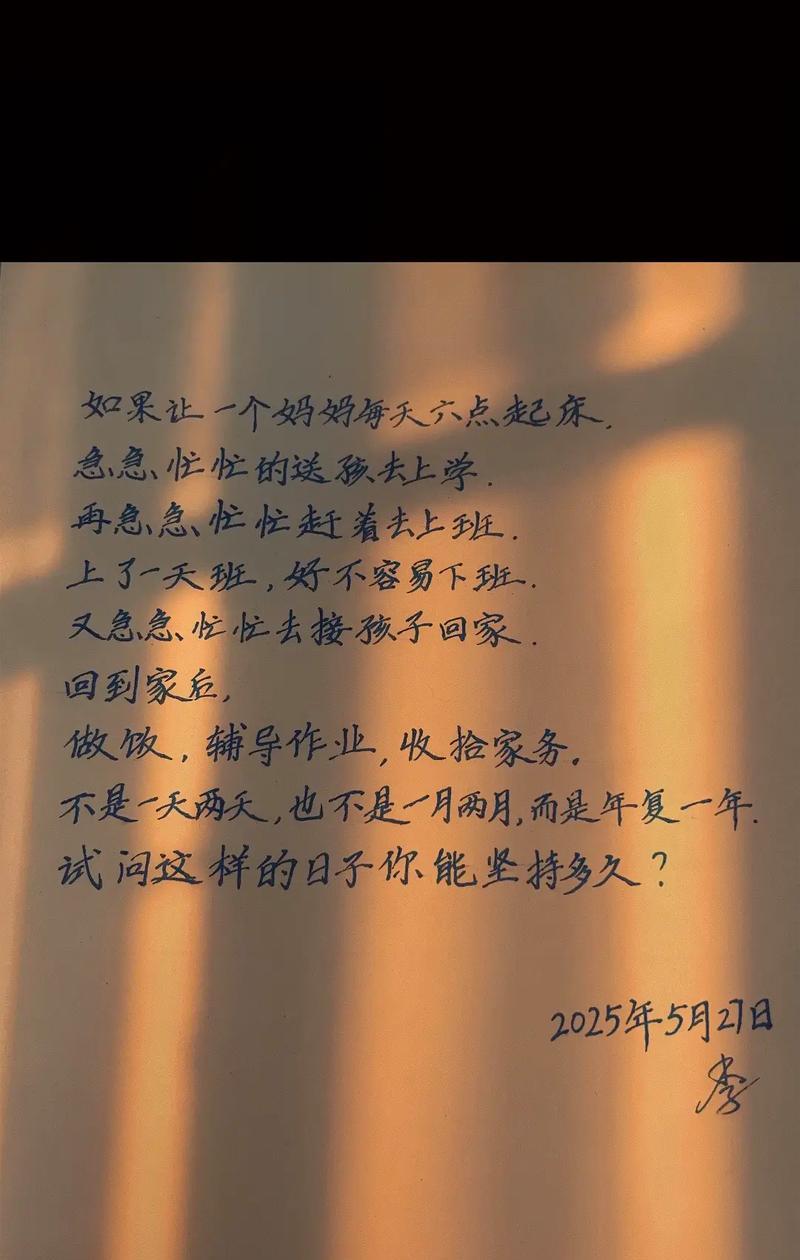 如果让一个妈妈每天六点起床.
急急忙忙的送孩去上学.
再急急忙忙赶着去上班.
上了一天班,好不容易下班.
又急急忙忙去接孩子回家.
回到家后,
做饭,辅导作业,收拾家务。
不是一天两天,也不是一月两月,而是年复一年.
试问这样的日子你能坚持多久?
2025年5月27日
李